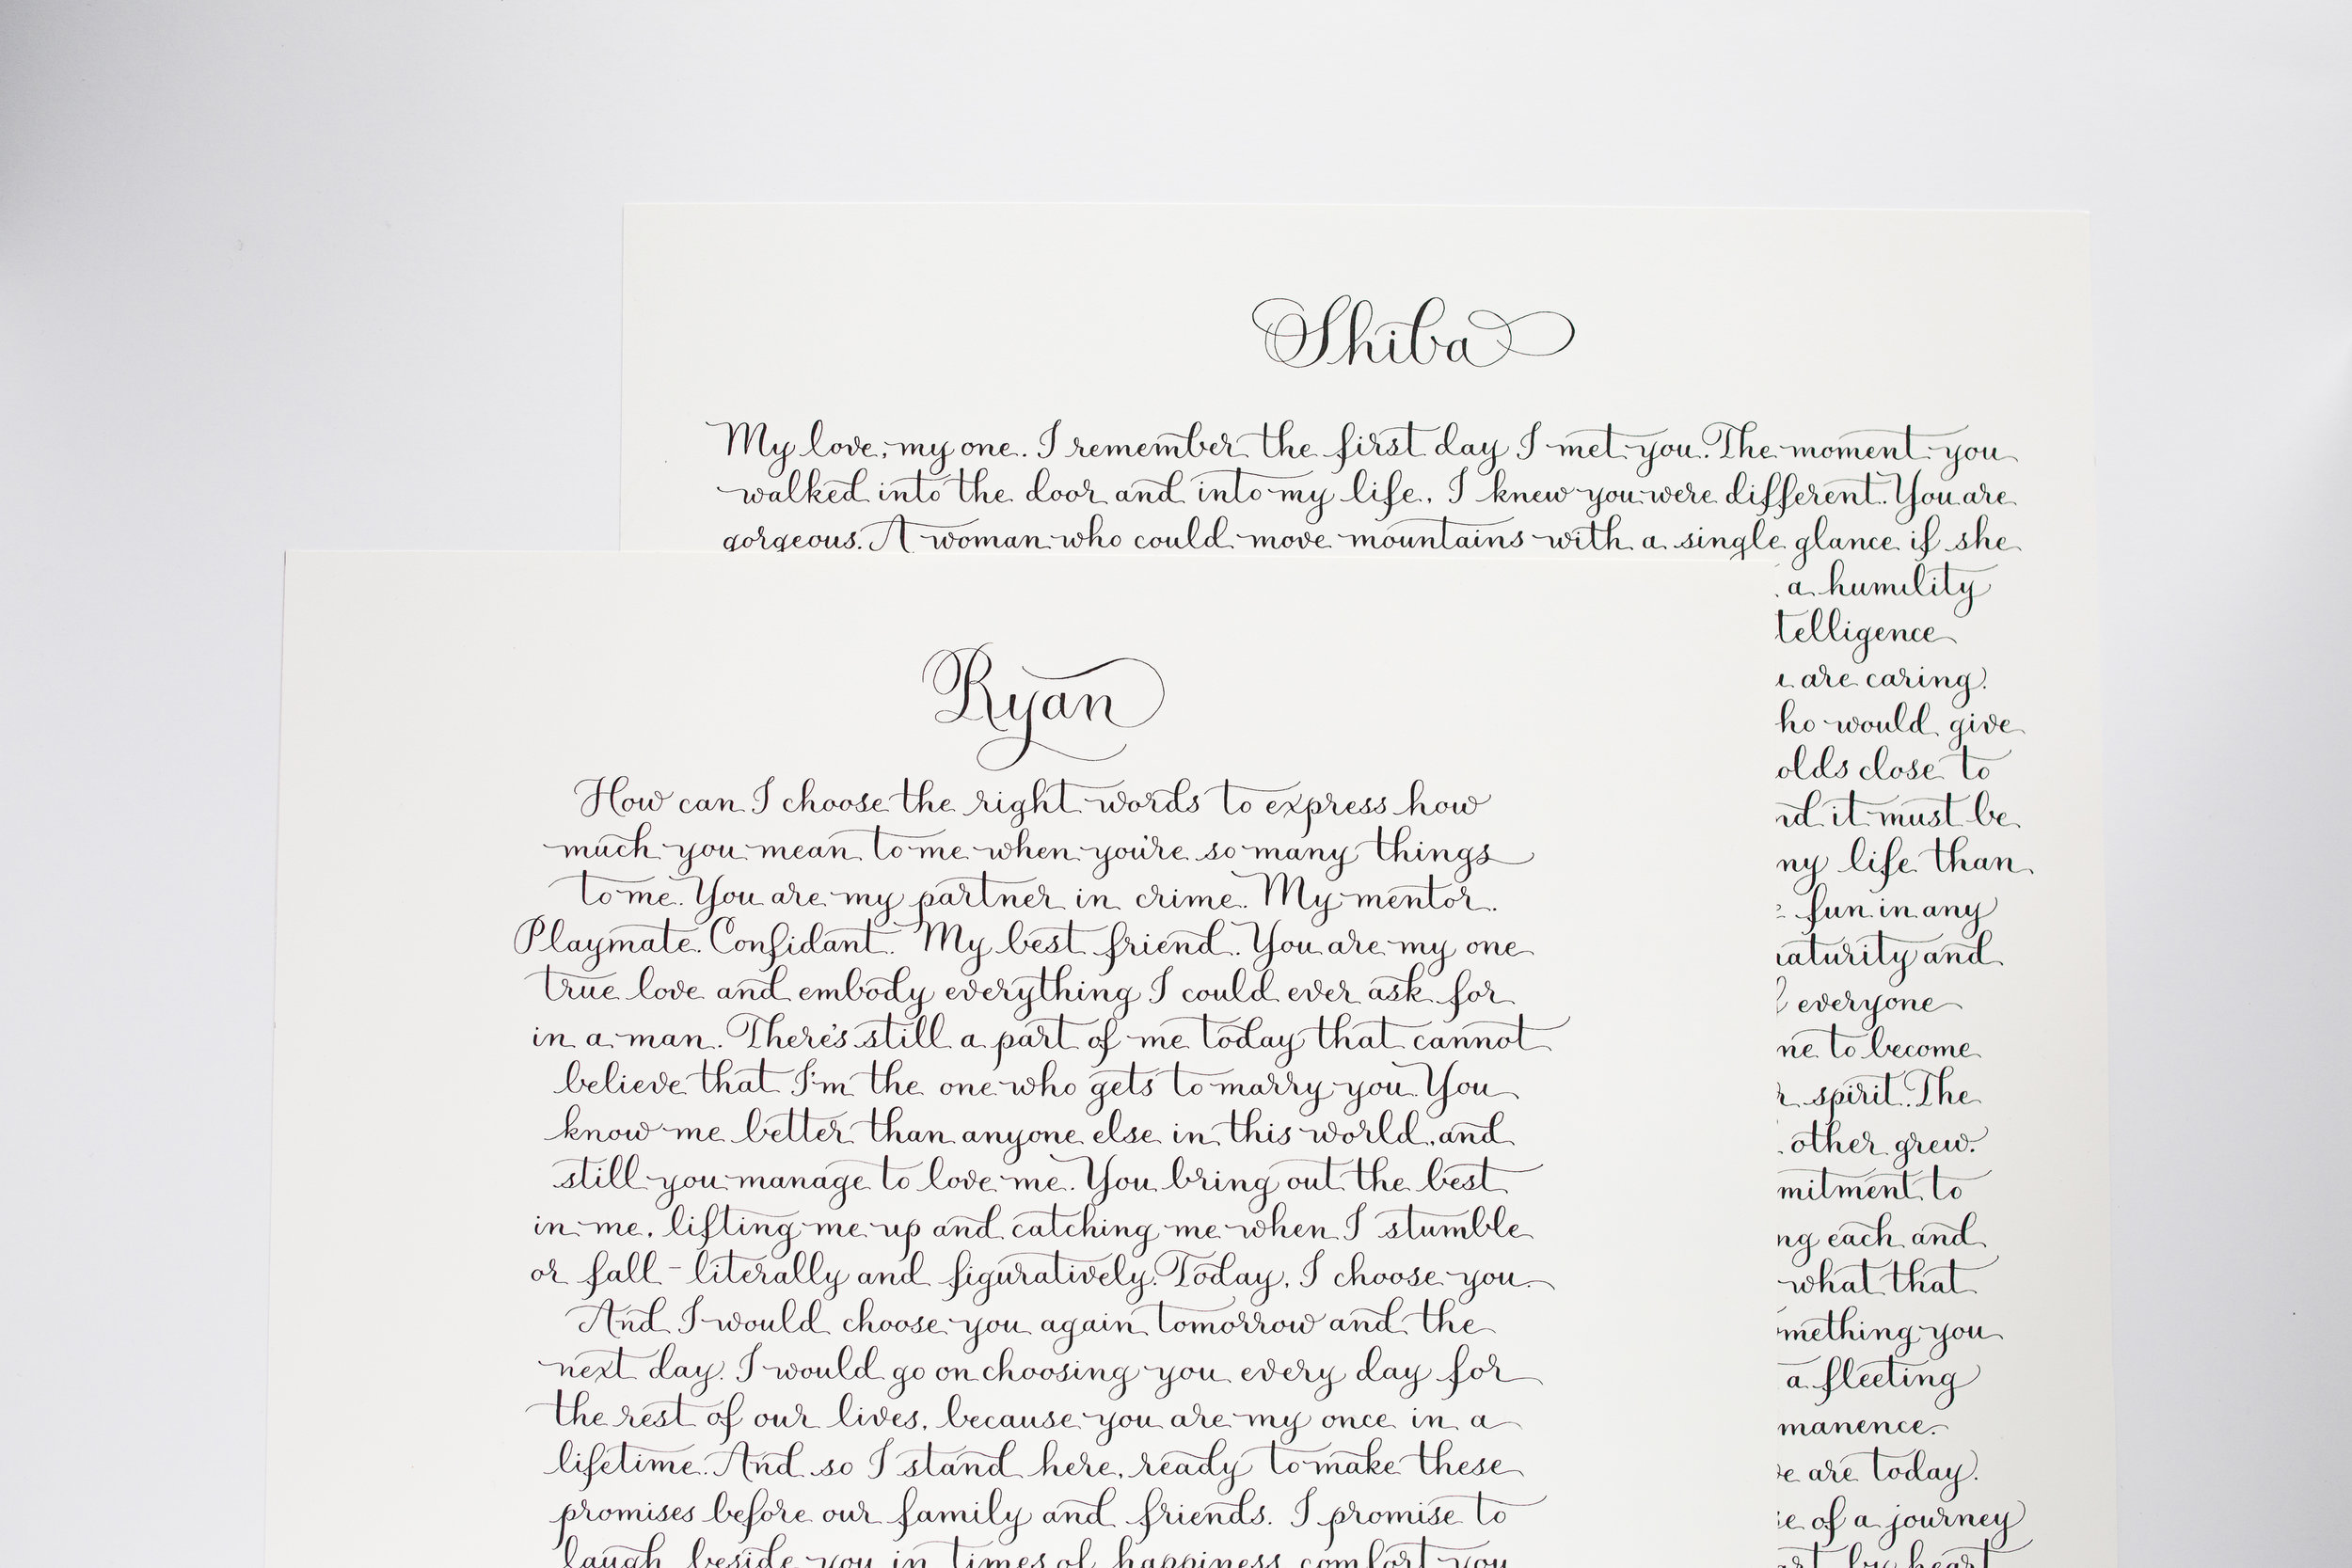 Shiba
My love, my one. I remember the first day I met you. The moment you
walked into the door and into my life, I knew you were different. You are
gorgeous. A woman who could move mountains with a single glance if she
a humility
telligence
are caring.
ho would give
olds close to
it must be
ny life than
fun in any
aturity and
everyone
ne to become
spirit. The
other grew.
mitment to
ng each and
what that
mething you
a fleeting
manence.
are today.
of a journey
by heart
Ryan
How can I choose the right words to express how
much you mean to me when you're so many things
to me. You are my partner in crime. My mentor.
Playmate. Confidant. My best friend. You are my one
true love and embody everything I could ever ask for
in a man. There's still a part of me today that cannot
believe that I'm the one who gets to marry you. You
know me better than anyone else in this world, and
still you manage to love me. You bring out the best
in me, lifting me up and catching me when I stumble
or fall - literally and figuratively. Today, I choose you.
And I would choose you again tomorrow and the
next day. I would go on choosing you every day for
the rest of our lives, because you are my once in a
lifetime. And so I stand here, ready to make these
promises before our family and friends. I promise to
laugh beside you in times of happiness, comfort you